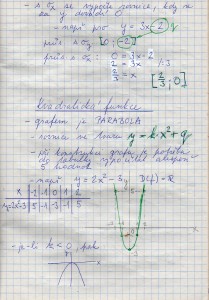 - s oy se vypočte rovnice, kdy se
za y dosadí 0
- např. pro y = 3x - 2
průs. s oy [0; -2]
průs. s ox: 0 = 3x - 2
2 = 3x /:3
2/3 = x [2/3; 0]
kvadratická funkce
- grafem je PARABOLA
- rovnice ve tvaru y = k·x² + q
- při konstrukci grafu je potřeba
do tabulky vypočítat alespoň
5 hodnot
- např. y = 2x² - 3 D(f) = R
x -2 -1 0 1 2
y=2x²-3 5 -1 -3 -1 5
- je-li k < 0, pak